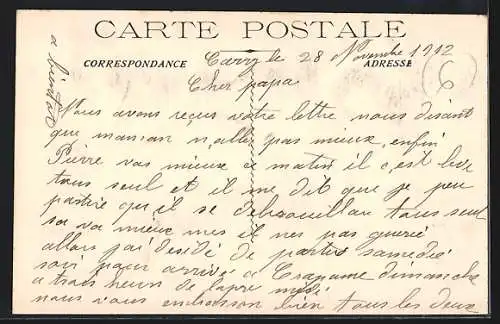 CARTE POSTALE
CORRESPONDANCE
ADRESSE
a bientot
Carry le 28 Novembre 1912
Cher papa
Nous avons reçus votre lettre nous disant
que maman n'allez pas mieux, enfin
Pierre vas mieux ce matin il c'est levé
tous seul et il me dit que je peu
partire qu'il se debrouillau tous seul
sa va mieux mes il nes pas gueri
allors j'ai desidé de partir samedie
soir pour arrivé a dimanche
a trois heure de l'apre midi
nous vous embrasson bien tous les deux